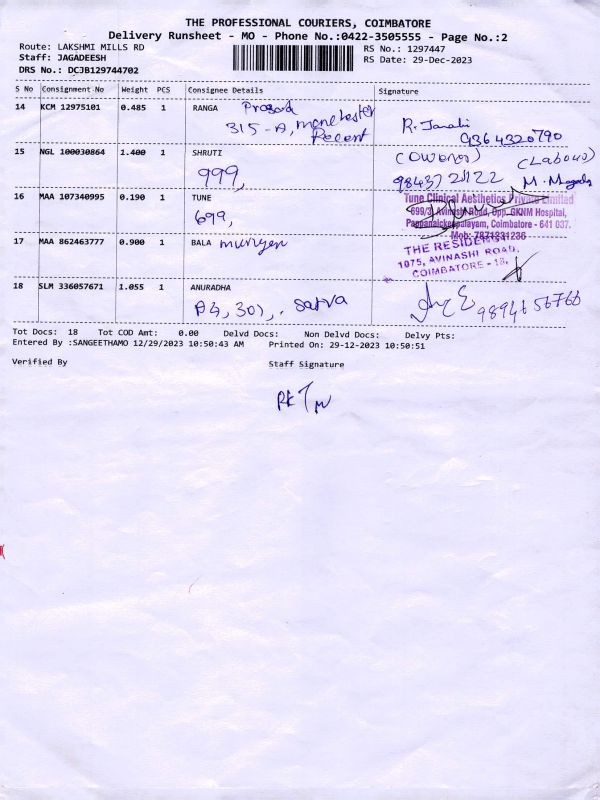 THE PROFESSIONAL COURIERS, COIMBATORE
Delivery Runsheet - MO - Phone No.:0422-3505555 - Page No.:2
Route: LAKSHMI MILLS RD
RS No.: 1297447
Staff: JAGADEESH
RS Date: 29-Dec-2023
DRS No.: DCJB129744702
S No Consignment-No Weight PCS Consignee Details Signature
14 KCM 12975101 0.485 1 RANGA Prasad
315-A, Manchester Recent
R. Janaki 9364320790
15 NGL 100030864 1.400 1 SHRUTI
999,
(Owener) (Labour)
98437 21122
16 MAA 107340995 0.190 1 TUNE
699,
Tune Clinical Aesthetics Private Limited
699/3, Avinashi Road, Opp. GKNM Hospital,
Pappanaickenpalayam, Coimbatore - 641 037.
Mob: 7871231236
17 MAA 862463777 0.900 1 BALA murugen
THE RESIDENCY
1075, AVINASHI ROAD,
COIMBATORE - 18.
18 SLM 336057671 1.055 1 ANURADHA
A4, 301, Satva
9894656766
Tot Docs: 18 Tot COD Amt: 0.00 Delvd Docs: Non Delvd Docs: Delvy Pts:
Entered By :SANGEETHAMO 12/29/2023 10:50:43 AM Printed On: 29-12-2023 10:50:51
Verified By
Staff Signature